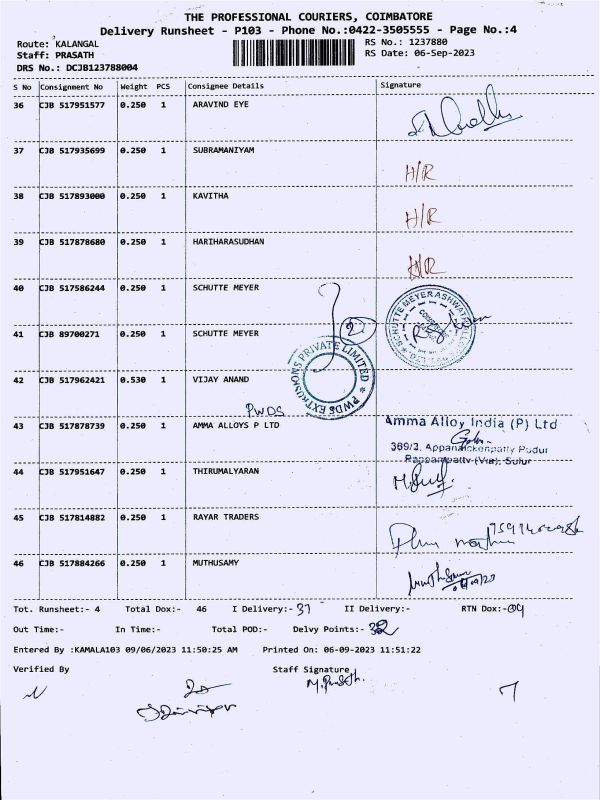 THE PROFESSIONAL COURIERS, COIMBATORE
Delivery Runsheet - P103 - Phone No.:0422-3505555 - Page No.:4
Route: KALANGAL
RS No.: 1237880
Staff: PRASATH
RS Date: 06-Sep-2023
DRS No.: DCJB123788004
S No Consignment No Weight PCS Consignee Details Signature
36 CJB 517951577 0.250 1 ARAVIND EYE
37 CJB 517935699 0.250 1 SUBRAMANIYAM
H/R
38 CJB 517893000 0.250 1 KAVITHA
H/R
39 CJB 517878680 0.250 1 HARIHARASUDHAN
H/R
40 CJB 517586244 0.250 1 SCHUTTE MEYER
SCHUTTE MEYER ASHWATH
41 CJB 89700271 0.250 1 SCHUTTE MEYER
2
PWDS EXTRUSIONS PRIVATE LIMITED
42 CJB 517962421 0.530 1 VIJAY ANAND
PWDS
43 CJB 517878739 0.250 1 AMMA ALLOYS P LTD
Amma Alloy India (P) Ltd
369/2, Appanaickenpatty Pudur
Rangampatty (Via), Sulur
44 CJB 517951647 0.250 1 THIRUMALYARAN
45 CJB 517814882 0.250 1 RAYAR TRADERS
46 CJB 517884266 0.250 1 MUTHUSAMY
Tot. Runsheet:- 4 Total Dox:- 46 I Delivery:- 37 II Delivery:- RTN Dox:- 09
Out Time:- In Time:- Total POD:- Delvy Points:- 32
Entered By :KAMALA103 09/06/2023 11:50:25 AM Printed On: 06-09-2023 11:51:22
Verified By Staff Signature
M. Prasath.